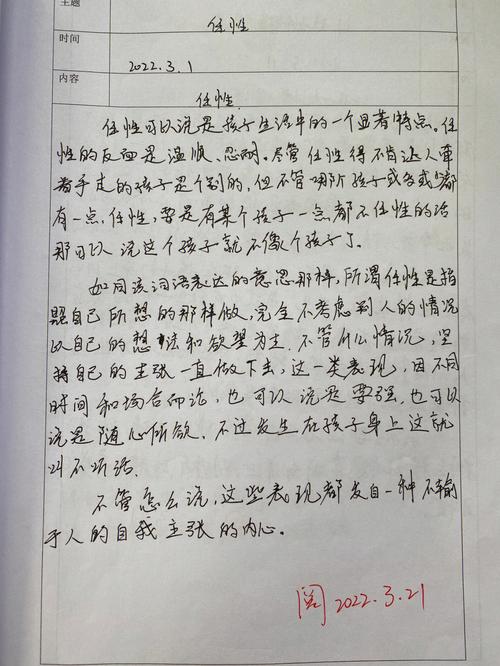 主题
任性
时间
2022.3.1
内容
任性.
任性可以说是孩子生活中的一个显著特点。任
性的反面是温顺、忍耐。尽管任性得不肯让人牵
着手走的孩子是个别的,但不管哪个孩子或多或少都
有一点任性,要是有某个孩子一点都不任性的话
那可以说这个孩子就不像个孩子了。
如同该词语表达的意思那样,所谓任性是指
照自己所想的那样做,完全不考虑别人的情况
以自己的想法和欲望为主.不管什么情况,坚
持自己的主张一直做下去,这一类表现,因不同
时间和场合而论,也可以说是要强,也可以
说是随心所欲.不过发生在孩子身上这就
叫不听话.
不管怎么说,这些表现都发自一种不输
于人的自我主张的内心。
阅 2022.3.21